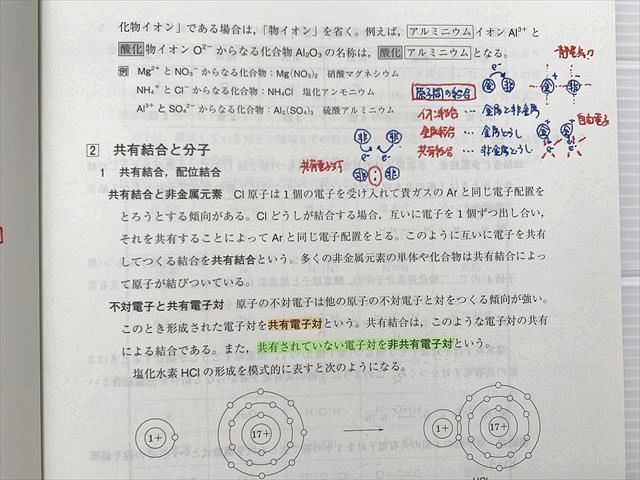 化物イオン」である場合は，「物イオン」を省く。例えば，アルミニウムイオンAl³⁺と
酸化物イオンO²⁻からなる化合物Al₂O₃の名称は，酸化アルミニウムとなる。
例 Mg²⁺とNO₃⁻からなる化合物：Mg(NO₃)₂ 硝酸マグネシウム
NH₄⁺とCl⁻からなる化合物：NH₄Cl 塩化アンモニウム
Al³⁺とSO₄²⁻からなる化合物：Al₂(SO₄)₃ 硫酸アルミニウム
静電気力
e⁻
金 非
金 + 非 -
原子間の結合
イオン結合 … 金属と非金属
金属結合 … 金属どうし
共有結合 … 非金属どうし
自由電子
金 + 金 +
e⁻ e⁻
非 非
e⁻ e⁻
共有電子対
非 : 非
2 共有結合と分子
1 共有結合，配位結合
共有結合と非金属元素 Cl原子は1個の電子を受け入れて貴ガスのArと同じ電子配置を
とろうとする傾向がある。Clどうしが結合する場合，互いに電子を1個ずつ出し合い，
それを共有することによってArと同じ電子配置をとる。このように互いに電子を共有
してつくる結合を共有結合という。多くの非金属元素の単体や化合物は共有結合によっ
て原子が結びついている。
不対電子と共有電子対 原子の不対電子は他の原子の不対電子と対をつくる傾向が強い。
このとき形成された電子対を共有電子対という。共有結合は，このような電子対の共有
による結合である。また，共有されていない電子対を非共有電子対という。
塩化水素HClの形成を模式的に表すと次のようになる。
1+ 17+ → 1+ 17+
HCl